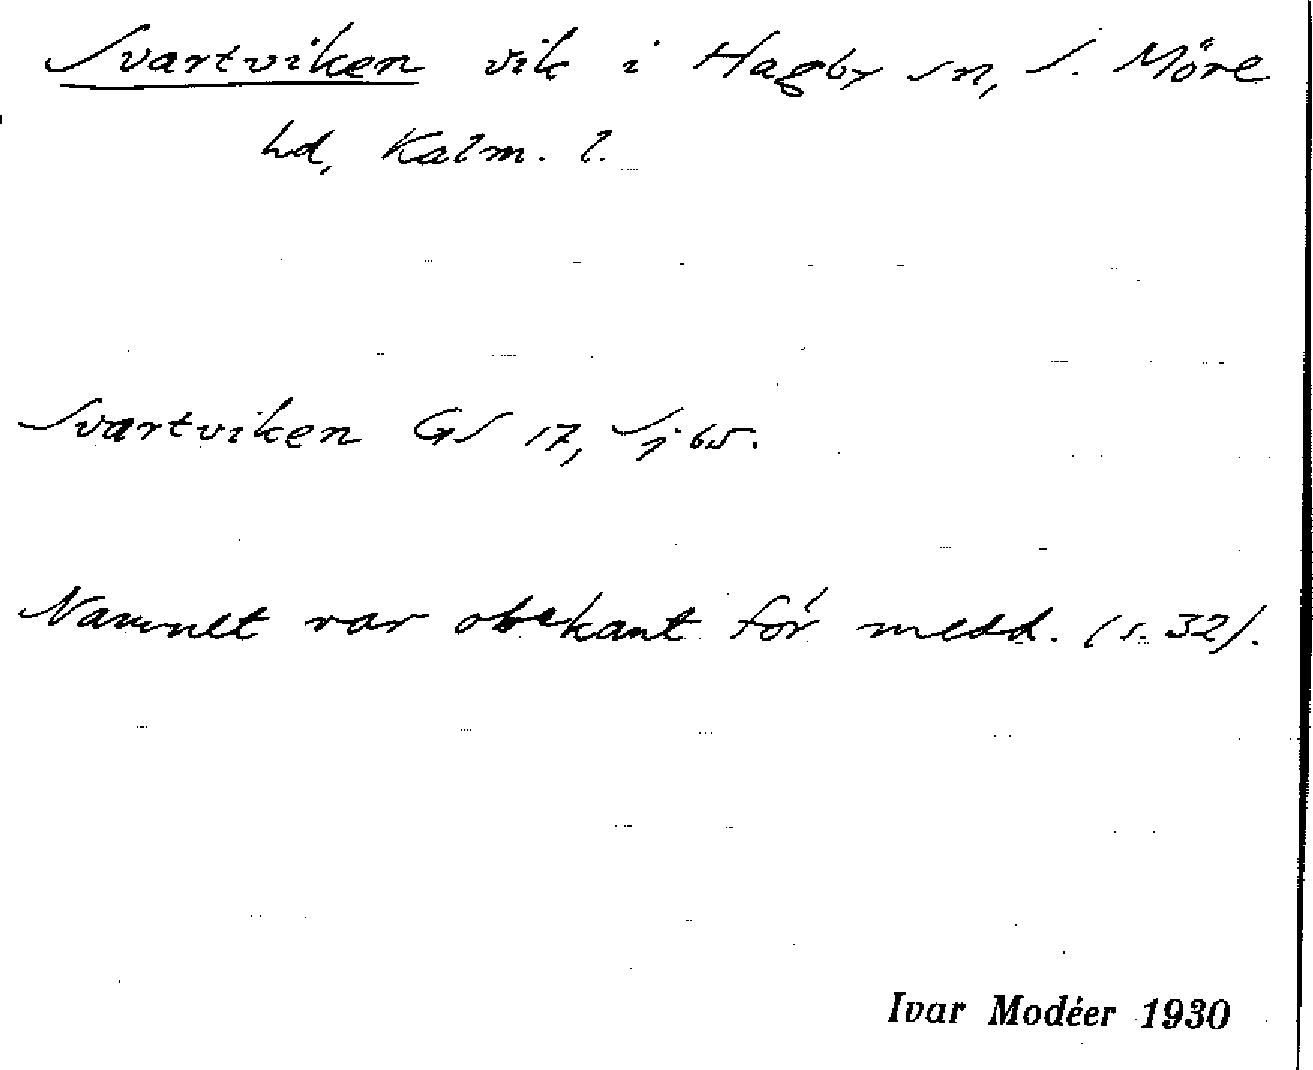 Svartviken vik i Hagby sn, S. Möre
hd, Kalm. l.
Svartviken GS 17, Sj 65.
Namnet var obekant för medd. (s. 32).
Ivar Modéer 1930